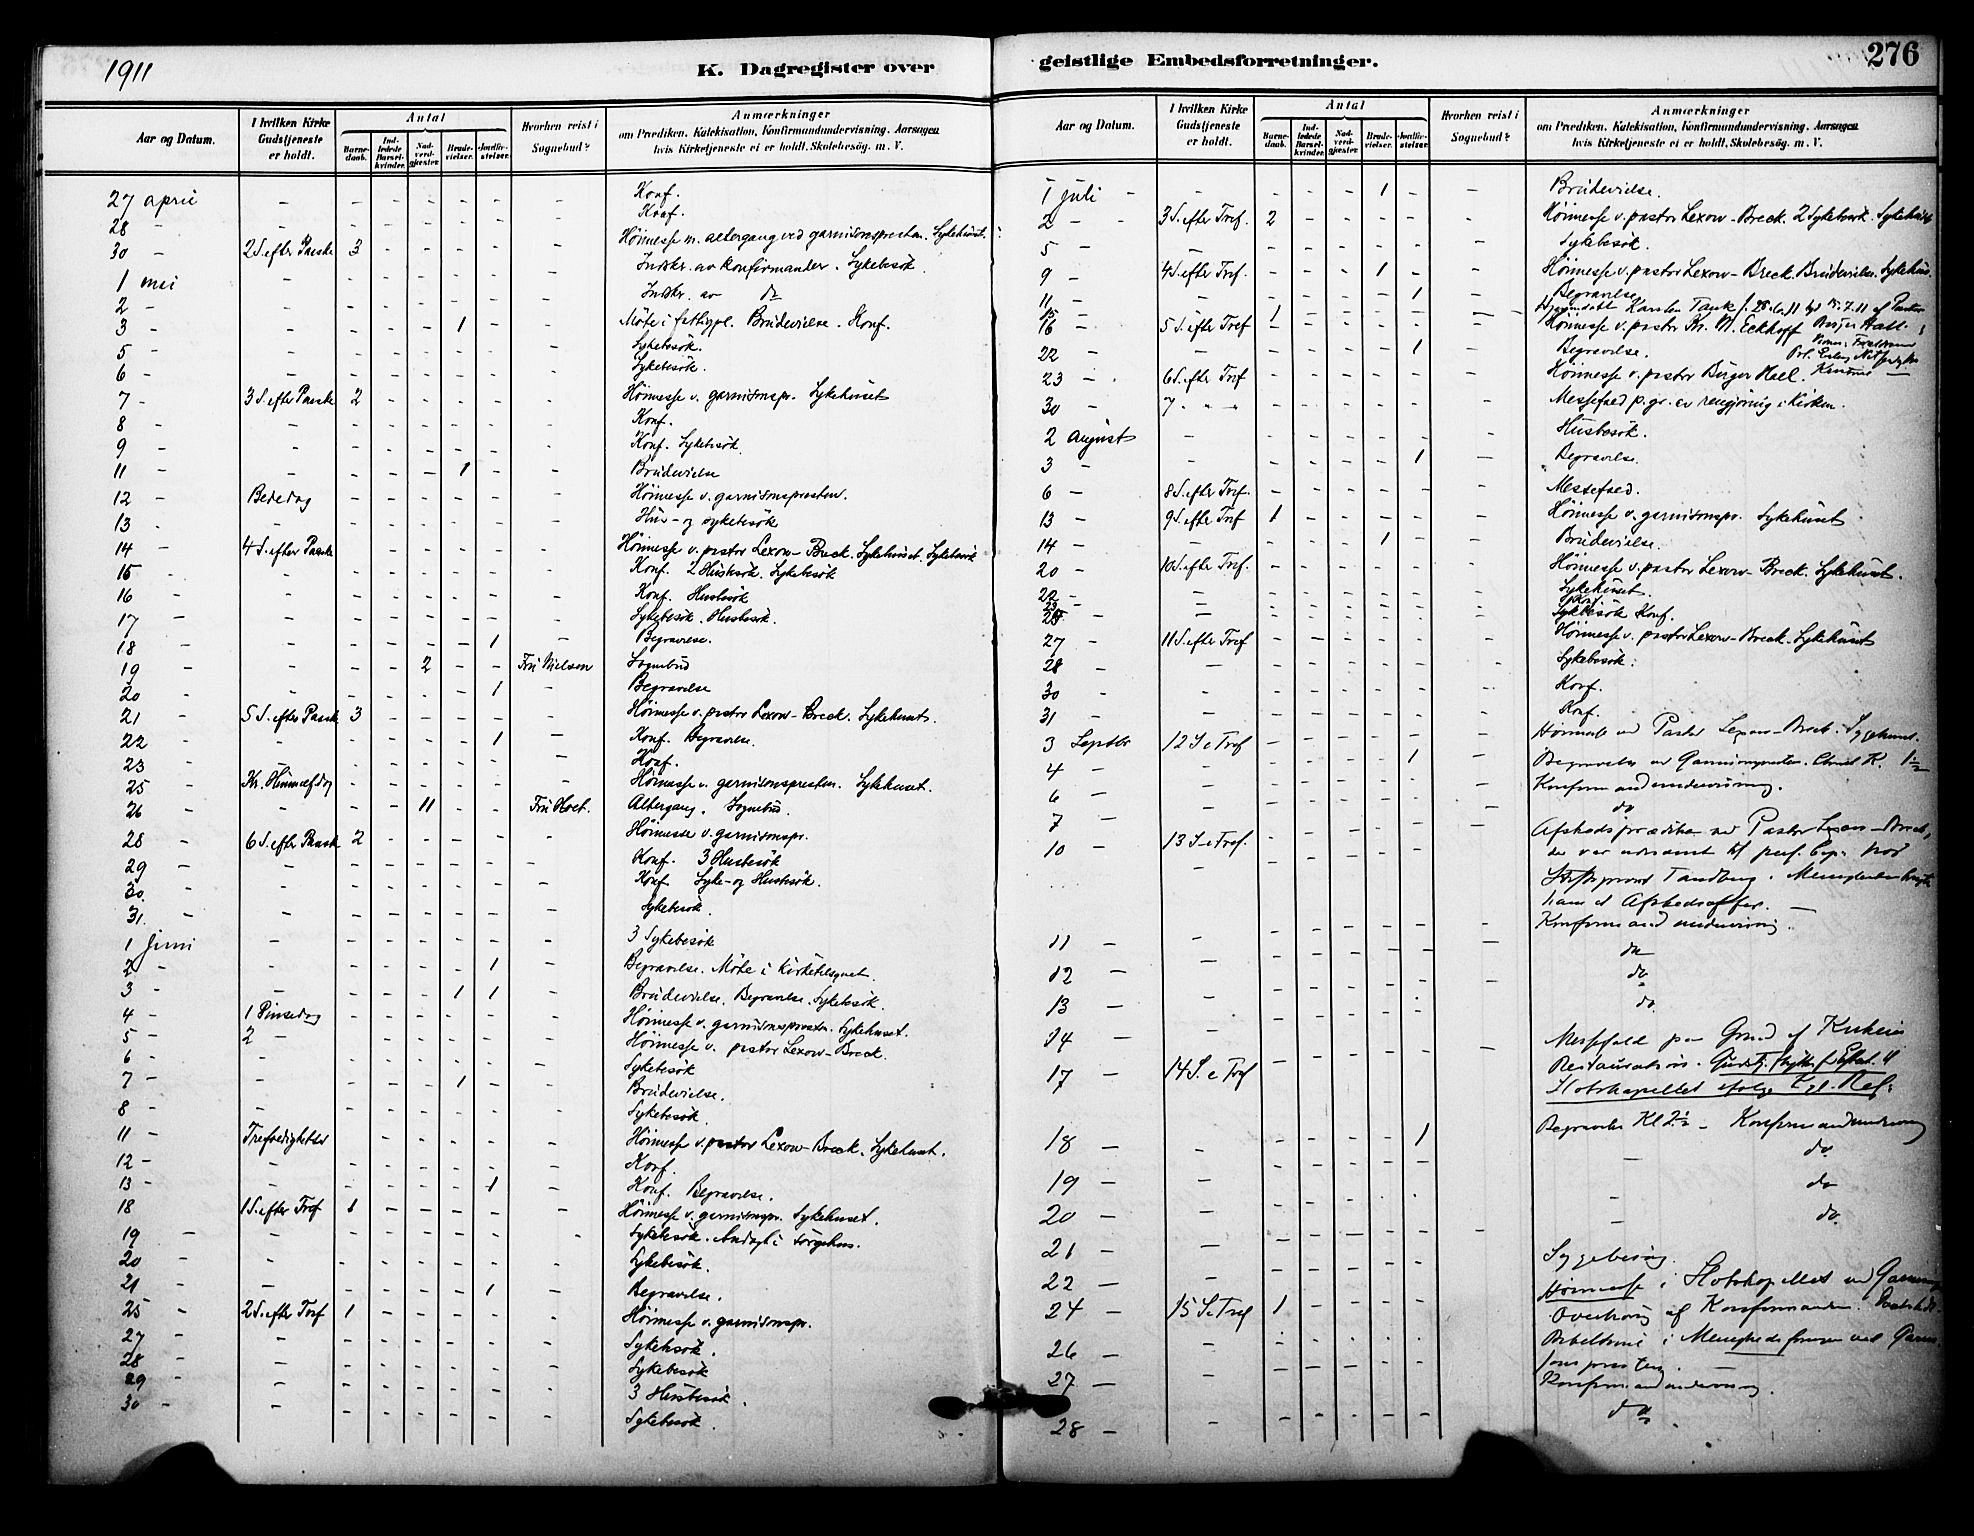 1911
K. Dagregister over
Aar og Datum. | I hvilken Kirke Gudstjeneste er holdt. | Antal | Barnedaab. | Indledede Barselkvinder. | Nadverdgjester. | Brudevielser. | Jordfæstelser. | Hvorhen reist i Sognebud? | Anmærkninger om Prædiken, Katekisation, Konfirmandundervisning, Aarsagen hvis Kirketjeneste ei er holdt, Skolebesøg. m. V.
27 april - Konf.
28 - Konf.
30 - 2 S. efter Paaske 3 Høimesse m. altergang ved garnisonspresten. Sykehuset.
1 mai - Indskr. av konfirmander. Sykebesök
2 - Indskr. av do
3 - 1 Möte i fattigpl. Brudevielse. Konf.
5 - Sykebesök.
6 - Sykebesök.
7 - 3 S. efter Paaske 2 Høimesse v. garnisonspr. Sykehuset
8 - Konf.
9 - Konf. Sykebesök
11 - 1 Brudevielse
12 - Bededag Høimesse v. garnisonspresten.
13 - Hus- og sykebesök
14 - 4 S. efter Paaske Høimesse v. pastor Lexow-Breck. Sykehuset. Sykebesök
15 - Konf. 2 Husbesök. Sykebesök
16 - Konf. Husbesök
17 - Sykebesök. Husbesök.
18 - 1 Begravelse.
19 - 2 Fru Nielsen Sognebud
20 - 1 Begravelse
21 - 5 S. efter Paask 3 Høimesse v. pastor Lexow-Breck. Sykehuset.
22 - 1 Konf. Begravelse.
23 - Konf.
25 - Kr. Himmelfdag Høimesse v. garnisonspresten. Sykehuset.
26 - 11 Fru Holt. Altergang. Sognebud.
28 - 6 S. efter Paaske 2 Høimesse v. garnisonspr.
29 - Konf. 3 Husbesök
30. Konf. Syke- og Husbesök.
31. - Sykebesök.
1 Juni - 3 Sykebesök
2 - 1 Begravelse. Möte i Kirketilsynet.
3 - 1 1 Brudevielse. Begravelse. Sykebesök.
4 - 1 Pinsedag Høimesse v. garnisonsprestn. Sykehuset.
5 - 2 - Høimesse v. pastor Lexow-Breck.
6 - Sykebesök
7 - 1 Brudevielse.
8 - Sykebesök
11 - Trefoldighetsr Høimesse v. pastor Lexow-Breck. Sykehuset.
12 - Konf.
13 - 1 Konf. Begravelse.
18 1 S. efter Tref 1 Høimesse v. garnisonspr. Sykehuset.
19 - Sykebesök. Andagt i sørgehus.
20 - Sykebesök.
21 - 1 Begravelse.
25 - 2 S. efter Tref 1 Høimesse v. garnisonspr.
27 - Sykebesök.
28 - Sykebesök
29 - 3 Husbesök.
30 - Sykebesök.
geistlige Embedsforretninger.
276
Aar og Datum. | I hvilken Kirke Gudstjeneste er holdt. | Antal | Barnedaab. | Indledede Barselkvinder. | Nadverdgjester. | Brudevielser. | Jordfæstelser. | Hvorhen reist i Sognebud? | Anmærkninger om Prædiken, Katekisation, Konfirmandundervisning, Aarsagen hvis Kirketjeneste ei er holdt, Skolebesøg. m. V.
1 juli - 1 Brudevielse.
2 - 3 S. efter Tref. 2 Høimesse v. pastor Lexow-Breck. 2 Sykebesök. Sykehuset
5 - Sykebesök.
9 - 4 S. efter Tref. 1 Høimesse v. pastor Lexow-Breck. Brudevielse. Sykehus.
11 - 1 Begravelse
15 - 1 Hjemmedøbt Karsten Tank
16 5 S. efter Tref Høimesse v. pastor Kr. N. Eckhoff
22 - 1 Begravelse.
23 - 6 S. efter Tref Høimesse v. pastor Birger Hall.
30 - 7 - - Messefald p. gr. av rengjøring i Kirken.
2 August - Husbesök.
3 - 1 Begravelse.
6 - 8 S. efter Tref. Messefald.
13 - 9 S. efter Tref 1 Høimesse v. garnisonspr. Sykehuset
14 - 1 Brudevielse.
20 - 10 S. efter Tref. Høimesse v. pastor Lexow-Breck. Sykehuset.
22 - Sykehuset.
23 - Konf
25 - Sykebesök Konf.
27 - 11 S. efter Tref Høimesse v. pastor Lexow-Breck. Sykehuset
28 - Sykebesök.
30 - Konf.
31 - Konf.
3 Septbr 12 S e Tref Høimesse ved Pastor Lexow-Breck. Sygehuset.
4 - 1 Begravelse
6 - Konfirmandundervisning.
7 - do
10 - 13 S e Tref. Afskedsprædiken ved Pastor Lexow-Breck,
der var
Stiftsprovst Tandberg. Menigheden
ham et Afskedsoffer. —
11 - Konfirmandundervisning.
12 - do
13 - do
14 - do
17 - 14 S. e Tref Messefald paa Grund af Kirkens
Restauration.
Slotskapellet
18 - 1 Begravelse Kl 2½ - Konfirmandundervisning
19 - do
20 - do
21 - do
22 - Sygebesøg.
24 - 15 S e Tref 1 Høimesse i Slotskapellet ved Garnisonspr
26 - Overhøring af Konfirmander.
27 - Bibeltime i Menigheds
Konfirmandundervisning.
28 - do